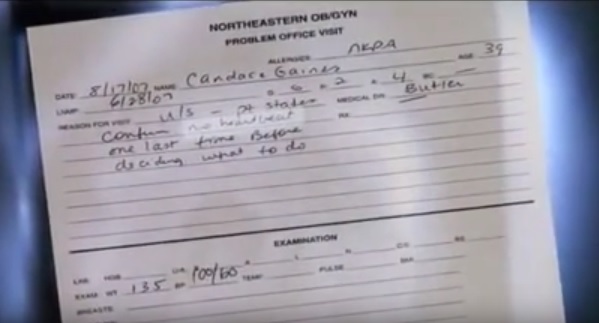 NORTHEASTERN OB/GYN
PROBLEM OFFICE VISIT
ALLERGIES NKDA
DATE 8/17/07 NAME Candace Gaines AGE 39
LNMP 6/28/07 6 2 4 BC
REASON FOR VISIT u/s - pt states MEDICAL DR: Butler
Confirm no heartbeat RX
one last time Before
deciding what to do
EXAMINATION
LAB: HGB
EXAM: WT 135 BP 100/60 TEMP PULSE
BREASTS: